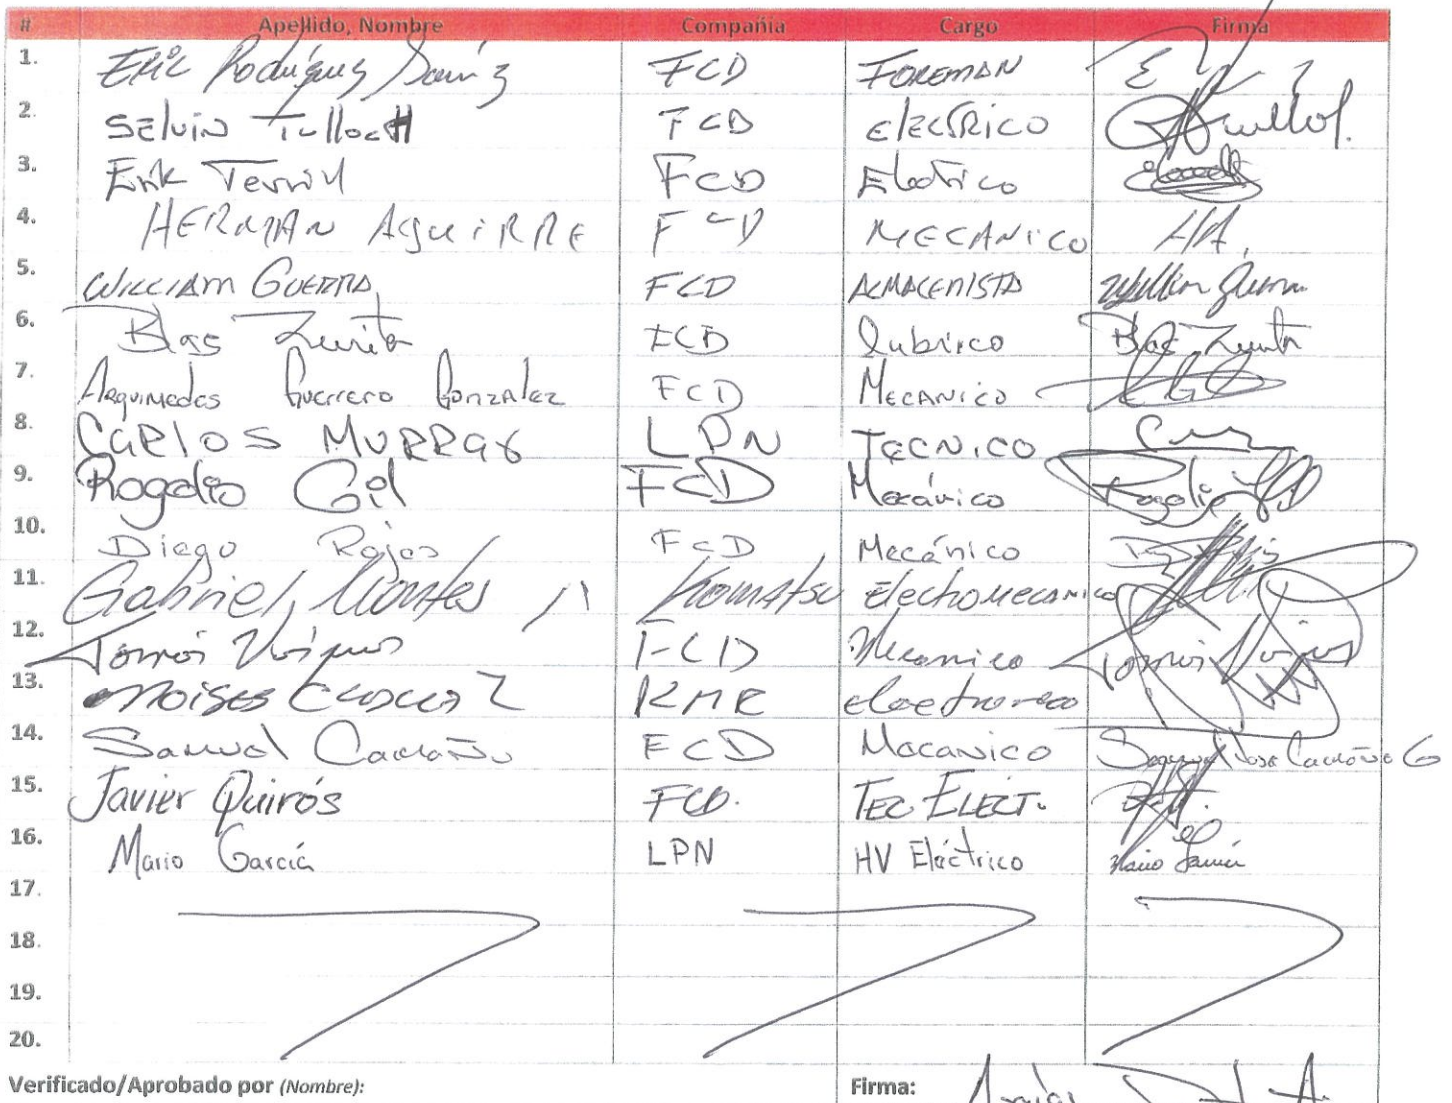 # Apellido, Nombre Compañia Cargo Firma
1. Eric Rodríguez FCD FOREMAN
2. Selvin TullocH FCD elecTRico
3. Erik Terril FCD Electrico
4. HERMAN AguiRRE FCD MECANico HA.
5. WILLIAM GUERRA FCD ALMACENISTA William Guerra
6. Blas Zurita FCD lubrico Blas Zurita
7. Arquimedes Guerrero Gonzalez FCD Mecanico
8. CaRlos MURRay LPN Tecnico
9. Rogelio Gil FCD Mecánico Rogelio Gil
10. Diego Rojas FCD Mecánico
11. Gabriel Montes Komatsu Electromecanico
12. Tomás FCD Mecanico Tomás
13. moises KMR
14. Samuel Caamaño FCD Mecanico Samuel Jose Caamaño G
15. Javier Quirós FCD. TEC ELECT.
16. Mario García LPN HV Eléctrico Mario García
17.
18.
19.
20.
Verificado/Aprobado por (Nombre): Firma: